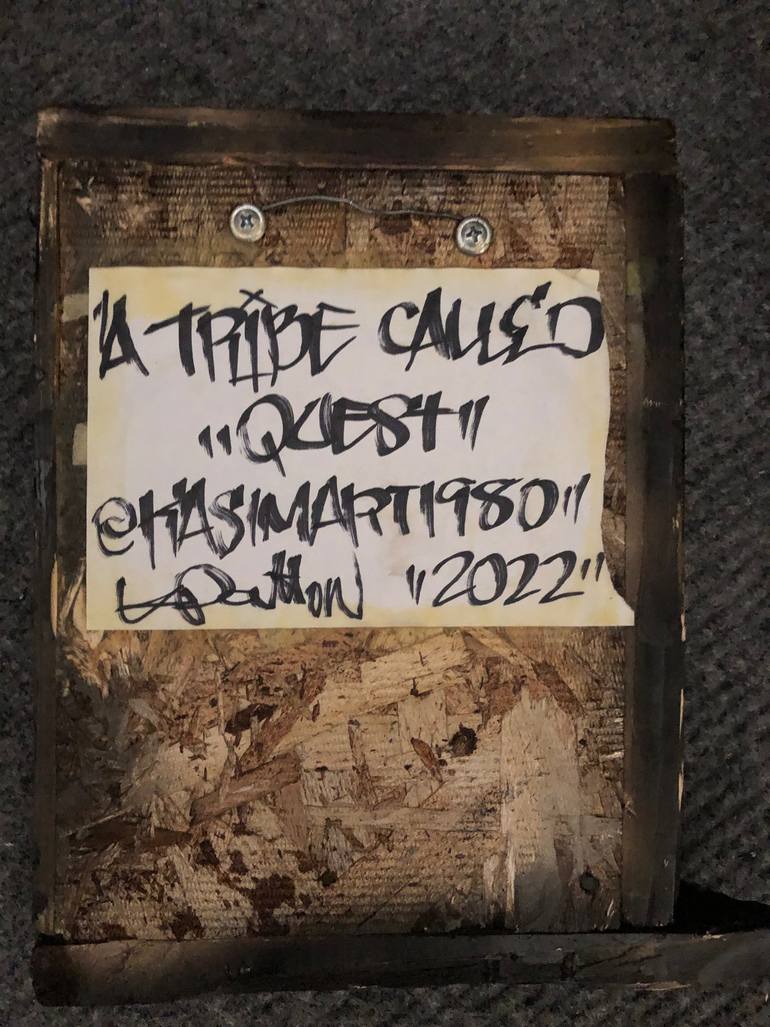 "A TRIBE CALLED
"QUEST"
@KASIMART1980"
"2022"